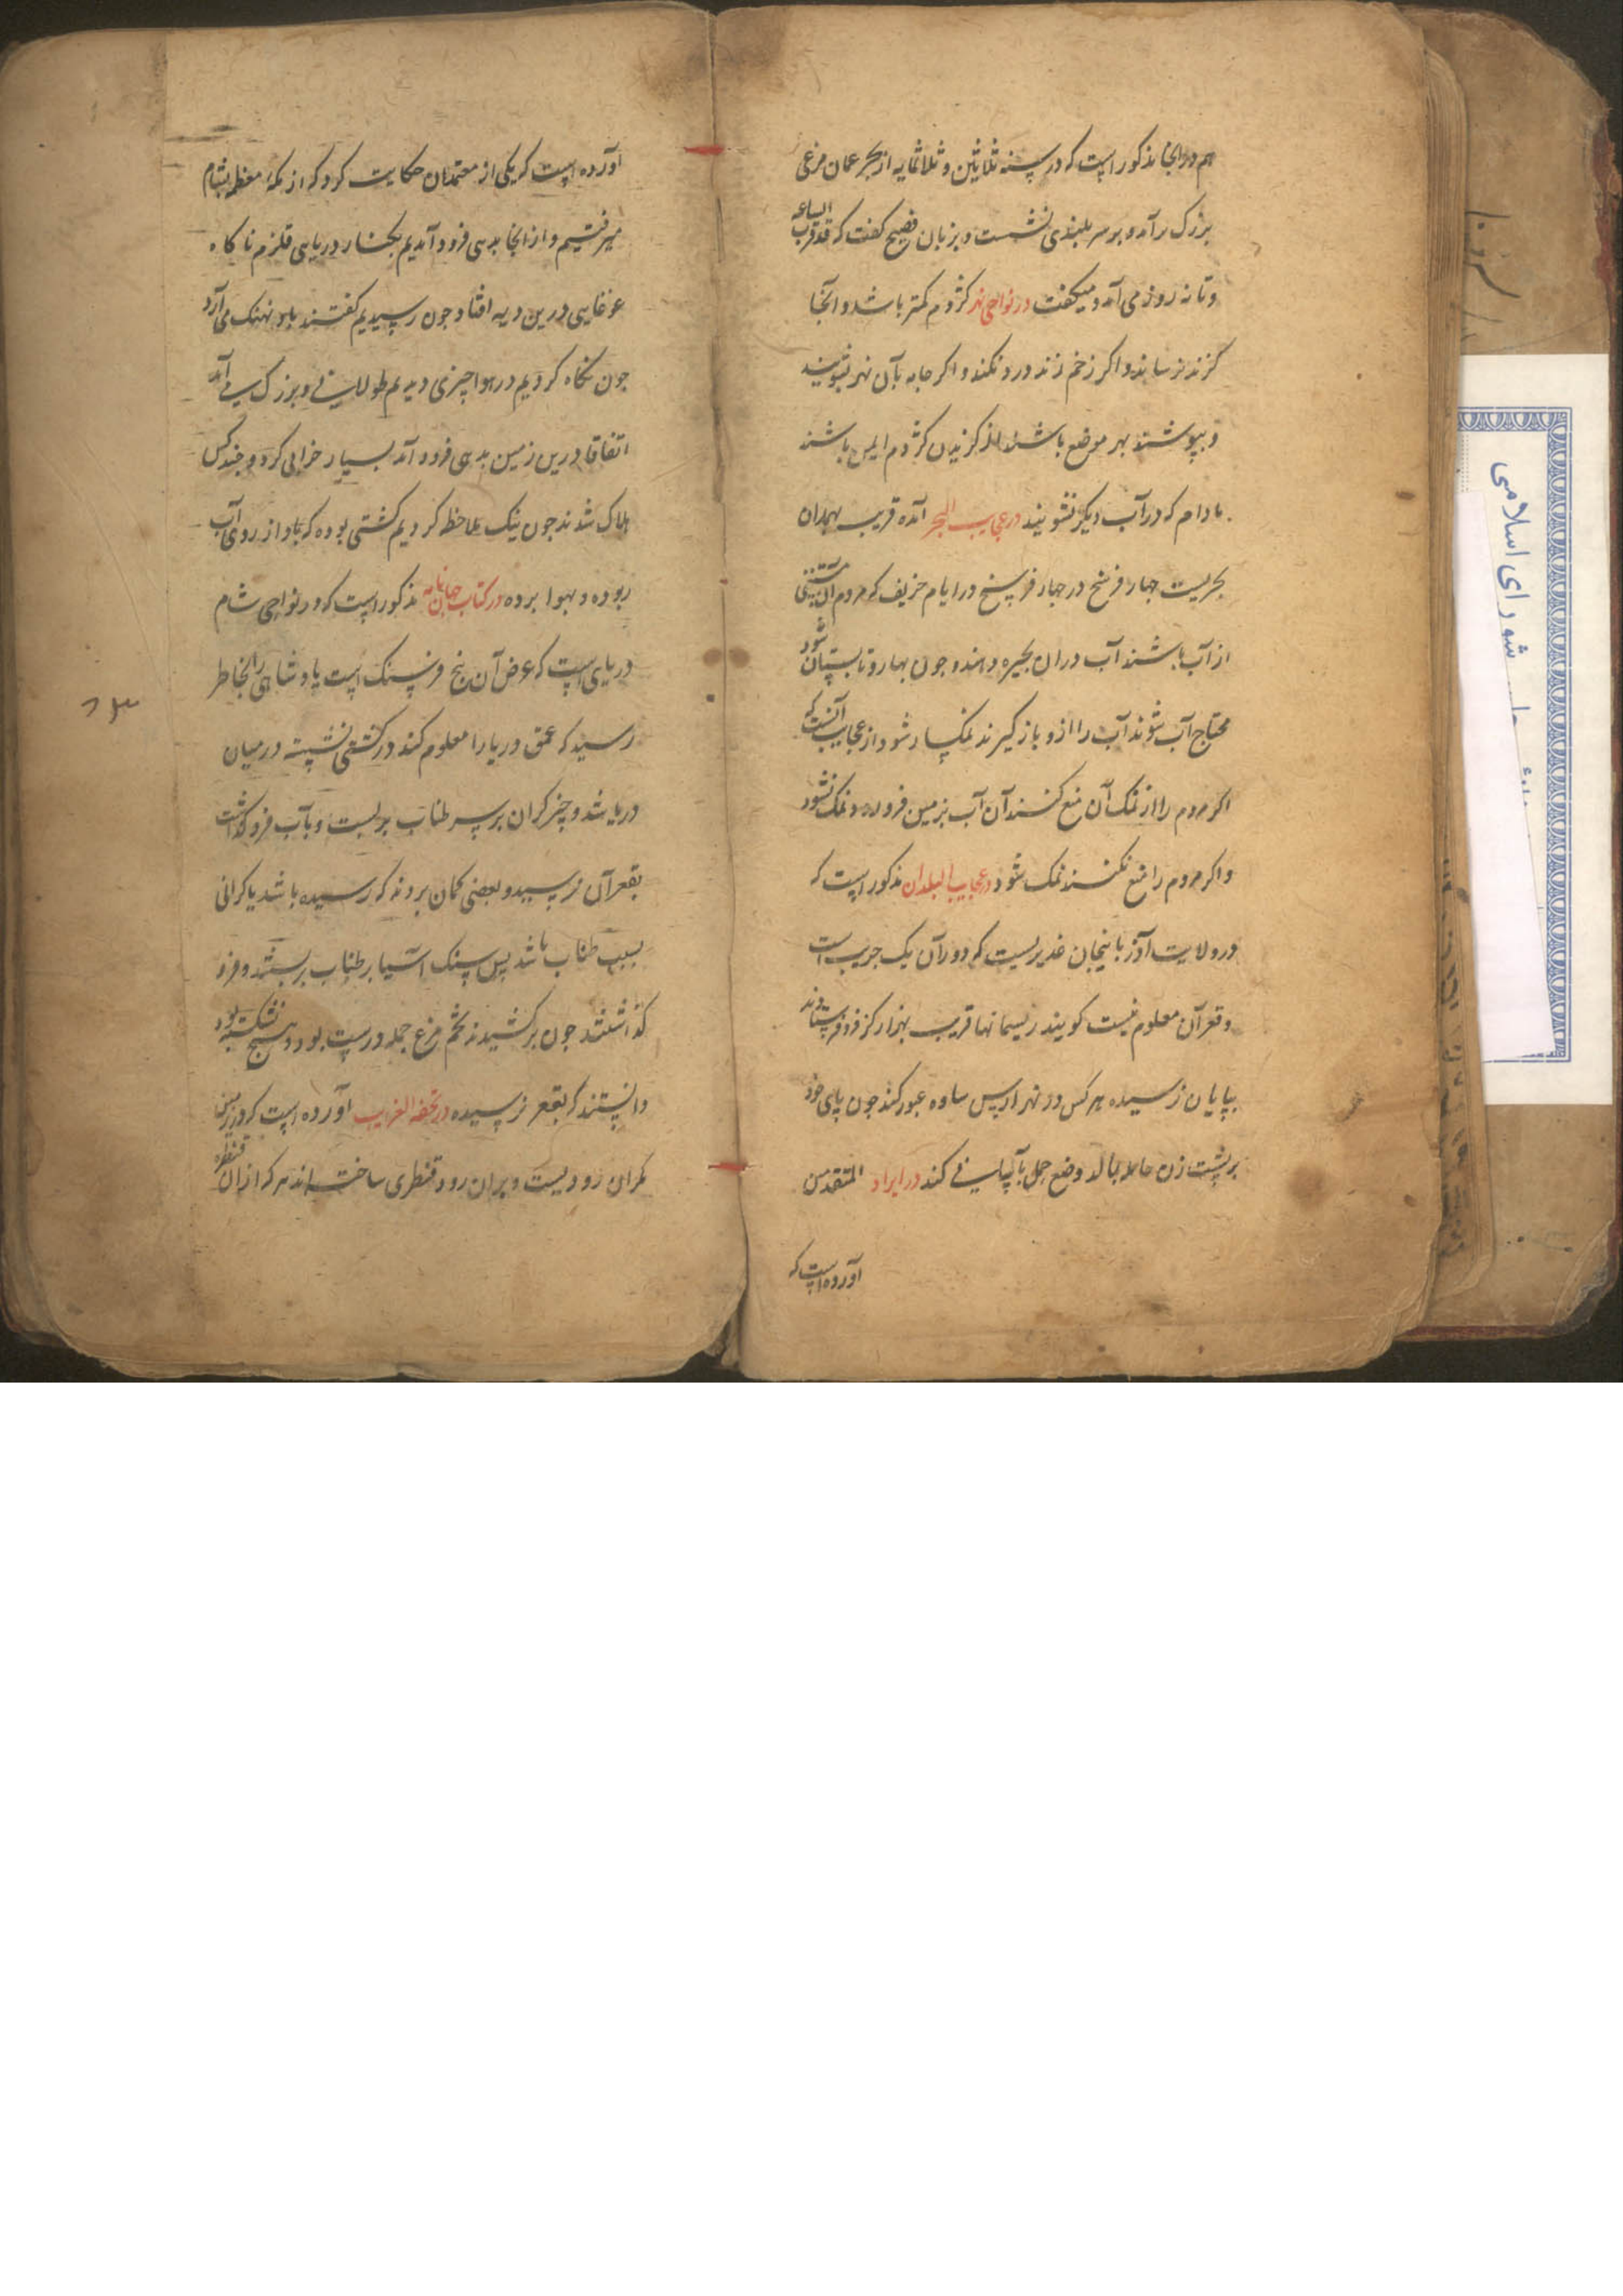 هم در انجا مذکور است که در سنه ثلاثین و ثلاثمایه از بحر عمان مرغی
بزرک برآمد و بر سر بلندی نشست و بزبان فصیح کفت که قد قرب الساعه
و تا نه روز می آمد و میکفت در نواحی نهر کژدم کمتر باشد و آنجا
کزند نرساند و اکر زخم زند درد نکند و اکر جامه بآن نهر بشویند
و بپوشند بهر موضع باشند از کزیدن کژدم ایمن باشند
مادام که در آب دیکر نشویند در عجایب البحر آمده قریب بهمدان
بحریست چهار فرسخ در چهار فرسخ در ایام خریف که مردم آن مستغنی
از آب باشند آب در ان بحیره دهند و چون بهار و تابستان شود
محتاج آب شوند آب را ازو باز کیرند نمکسار شود از عجایب آنست که
اکر مردم را از نمک آن منع کنند آن آب بزمین فرو رود و نمک نشود
و اکر مردم را منع نکنند نمک شود در عجایب البلدان مذکور است که
در ولایت آذربایجان غدیریست که دور آن یک جریب است
و قعر آن معلوم نیست کویند ریسمانها قریب بهزار کز فرو فرستادند
بپایان نرسیده هر کس در نهر ارس ساده عبور کند چون پای خود
بر پشت زن حامله بمالد وضع حمل بآسانی کند در ایراد المتقدمین
آورده است که
آورده است که یکی از معتمدان حکایت کرد که از مکه معظمه بشام
میرفتیم و از انجا بدهی فرود آمدیم بکنار دریای قلزم ناکاه
غوغایی درین دیه افتاد چون رسیدیم کفتند باد نهنک می آرد
چون نکاه کردیم در هوا چیزی دیدیم طولانی و بزرک می آمد
اتفاقا درین زمین بدهی فرود آمد بسیار خرابی کرد و چند کس
هلاک شدند چون نیک ملاحظه کردیم کشتی بوده که باد از روی آب
ربوده و بهوا برده در کتاب جهان نامه مذکور است که در نواحی شام
دریای است که عرض آن پنج فرسنک است پادشاهی را بخاطر
رسید که عمق دریا را معلوم کند در کشتی نشسته در میان
دریا شد و چیز کران بر سر طناب بر بست و بآب فرو کذاشت
بقعر آن نرسید و بعضی کمان بردند که رسیده باشد یا کرانی
بسبب طناب باشد پس سنک آسیا بر طناب بر بستند و فرو
کذاشتند چون بر کشیدند تخم مرغ جمله درست بود و هیچ نشکسته بود
دانستند که بقعر نرسیده در تحفه الغرایب آورده است که در زمین
مکران رودیست و بران رود قنطری ساخته اند هر که از ان قنطره
شورای اسلامی